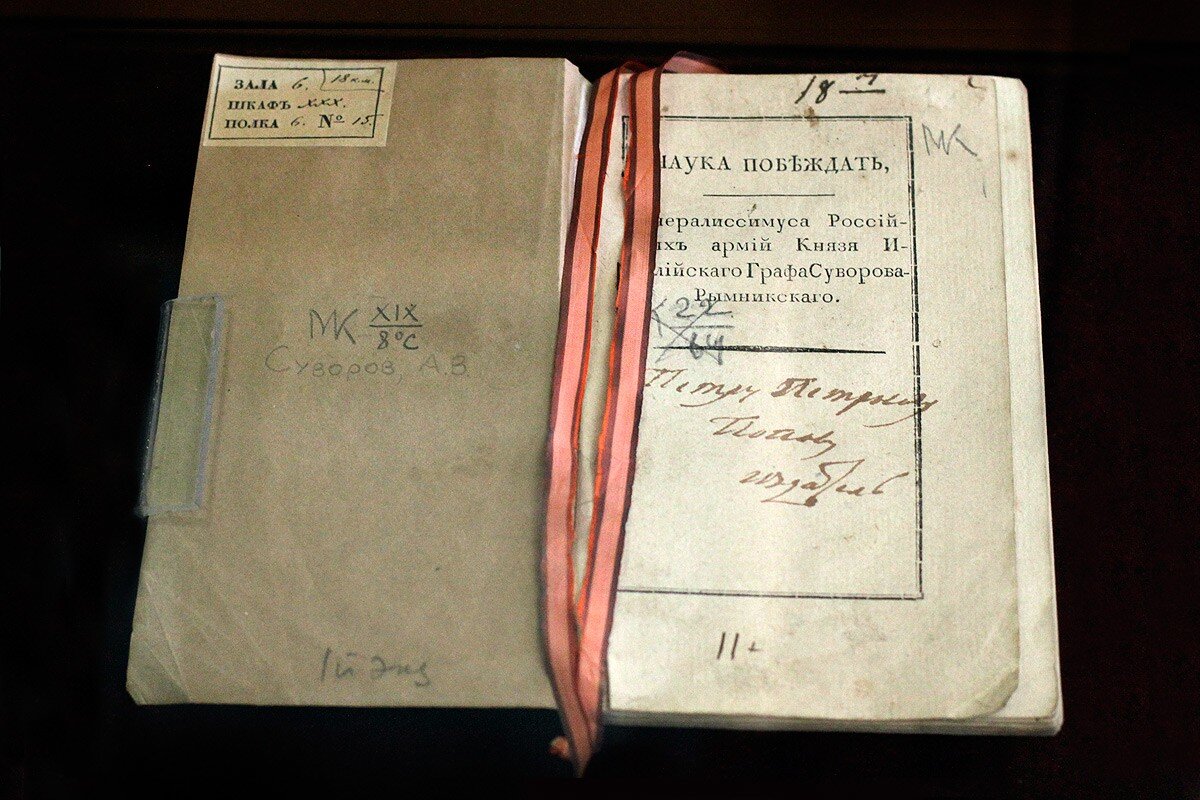 ЗАЛА 6. 18 км.
ШКАФЪ XXX.
ПОЛКА 6. № 15.
МК XIX
8°С
Суворов, А.В.
1й Экз
18 7
МК
НАУКА ПОБѢЖДАТЬ,
нералиссимуса Россій-
ихъ армій Князя И-
лійскаго Графа Суворова-
Рымникскаго.
К 22
64
Петру Петровичу
Попову
издатель
11